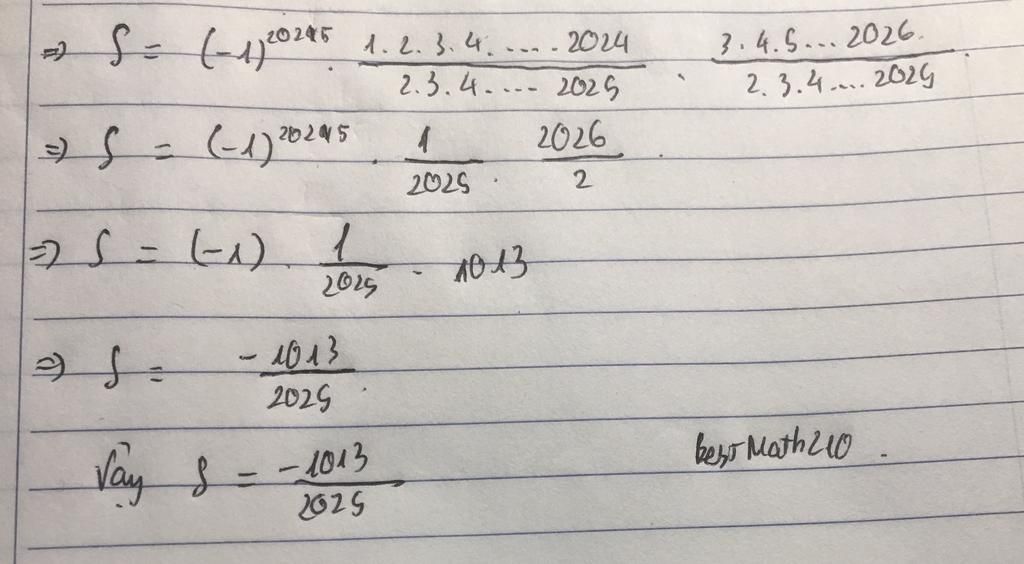 ⇒ S = (-1)^2025 . 1.2.3.4.....2024 / 2.3.4.... 2025 . 3.4.5...2026 / 2.3.4....2025 .
⇒ S = (-1)^2025 . 1 / 2025 . 2026 / 2 .
⇒ S = (-1) . 1 / 2025 . 1013
⇒ S = -1013 / 2025 .
Vậy S = -1013 / 2025
bestMath210 .